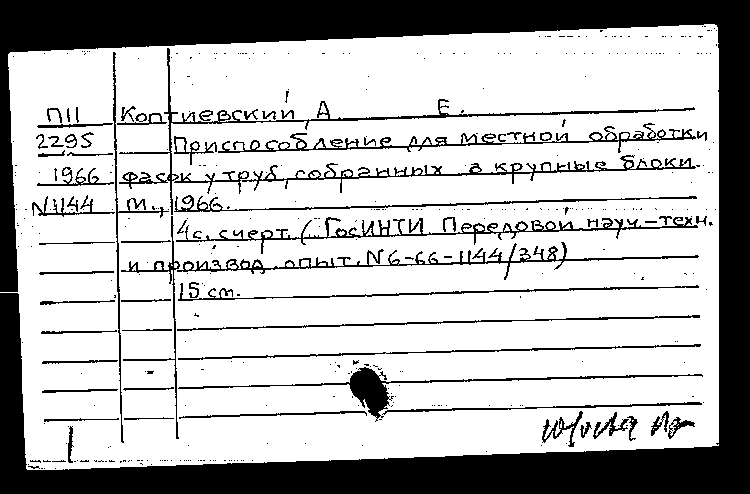 П11 Коптиевский, А Е.
2295 Приспособление для местной обработки
1966 фасок у труб, собранных в крупные блоки.
N1144 М., 1966.
4с. с черт. (ГосИНТИ Передовой науч.-техн.
и производ. опыт. N6-66-1144/348)
15 см.